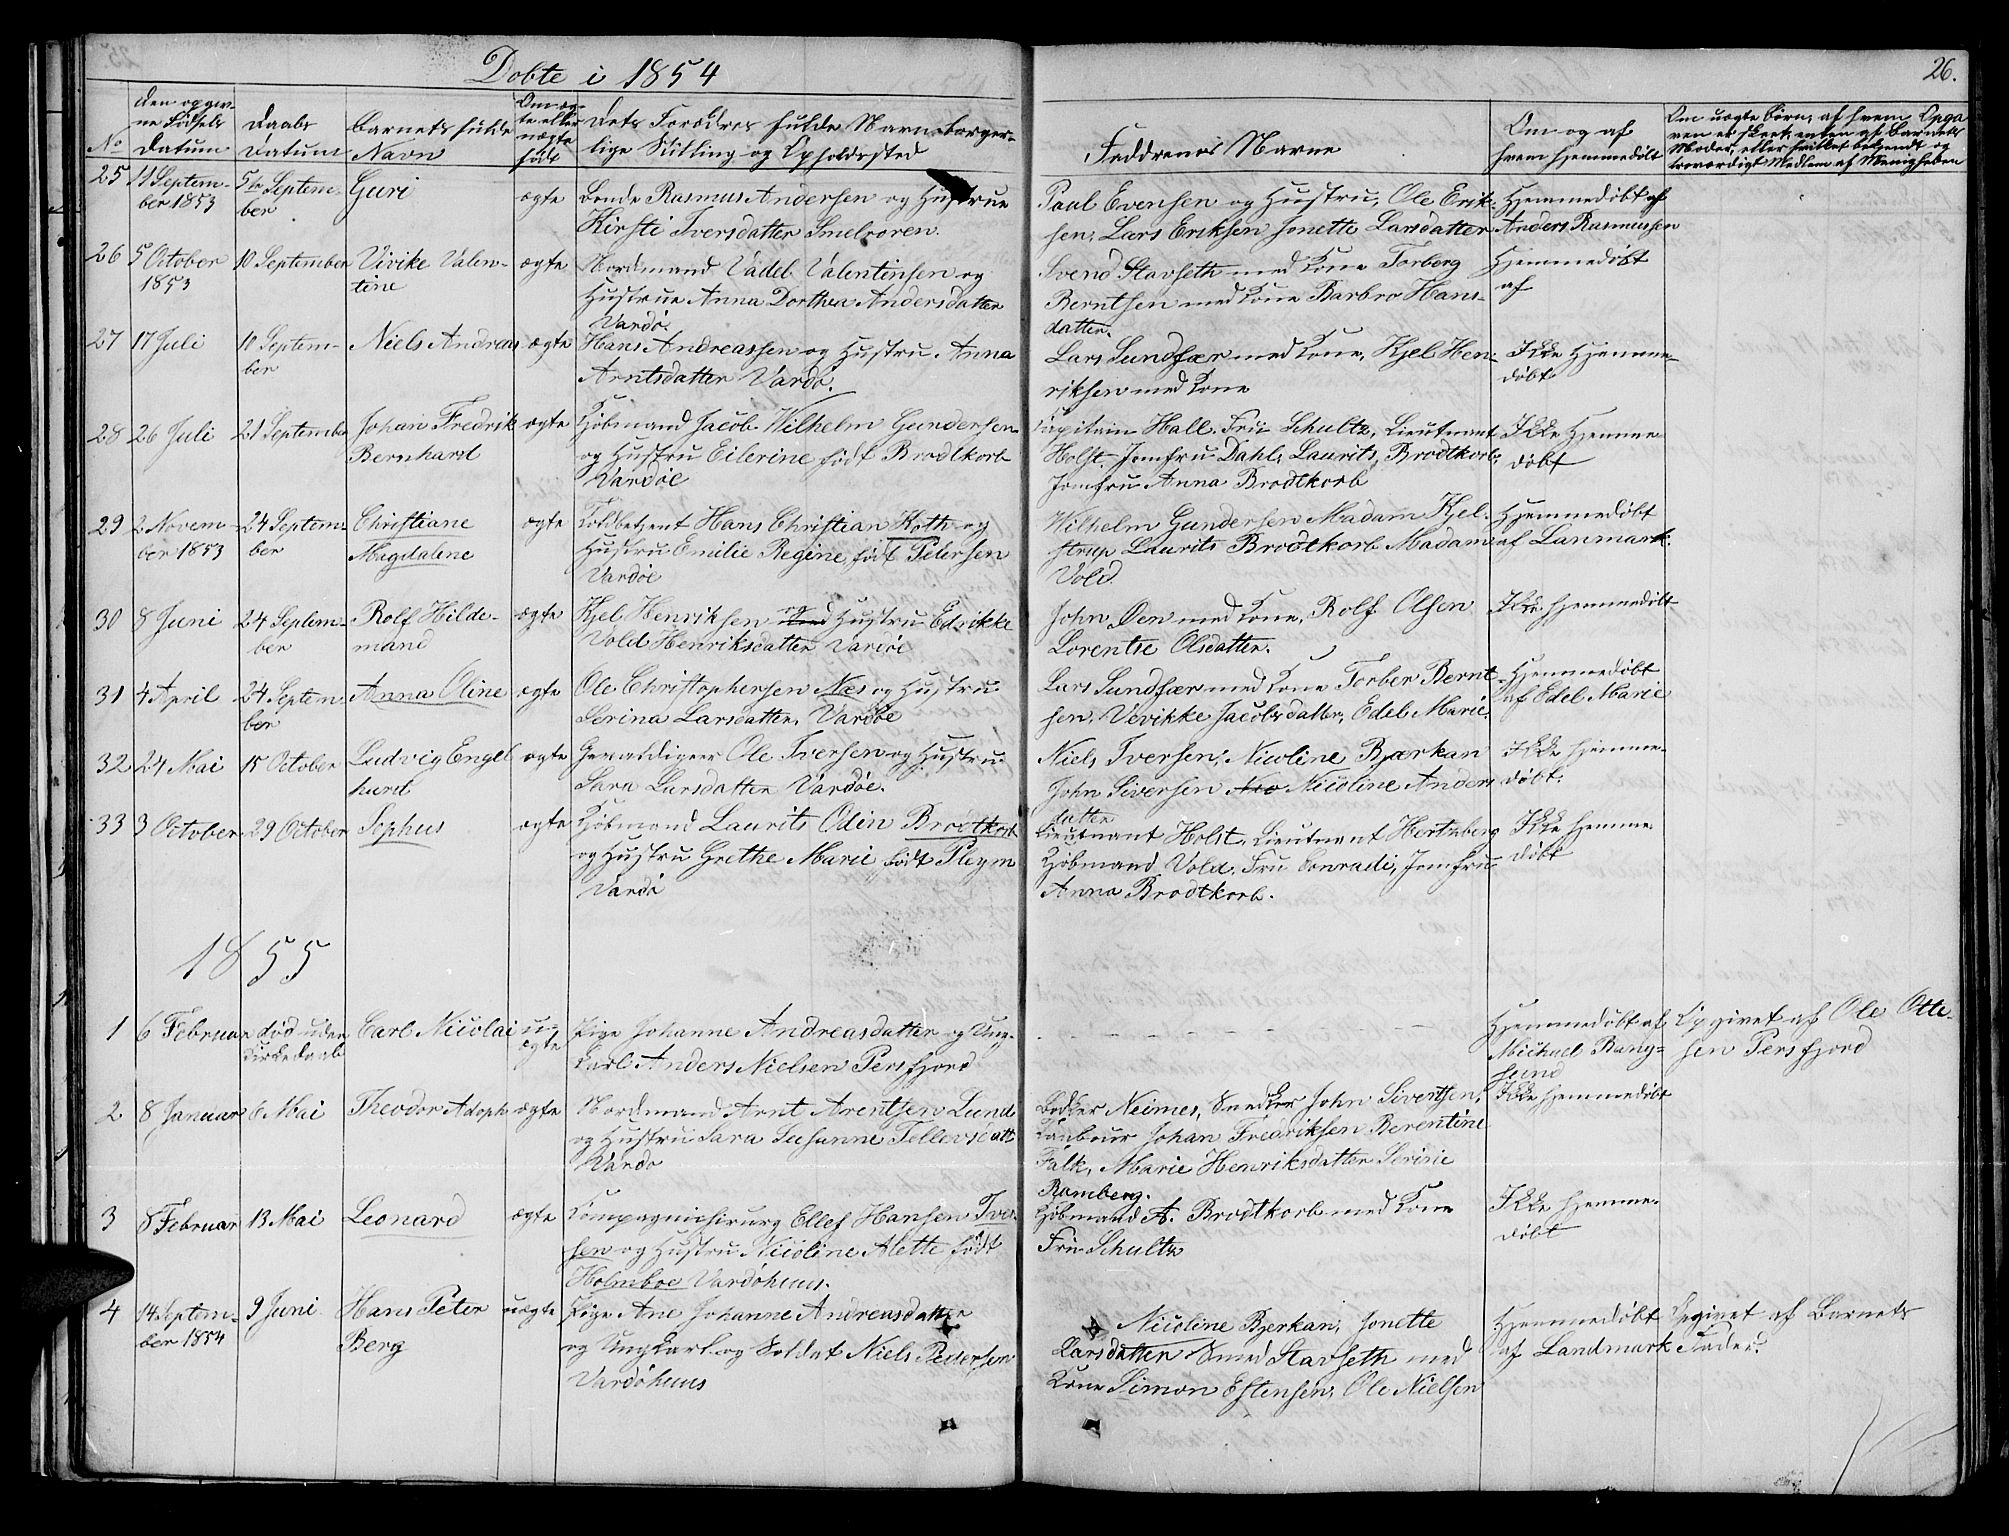 Dobte i 1854
26.
No
Den opgiv-
ne Fødsels
Datum
Daabs
Datum
Barnets fulde
Navn
Om æg-
te eller
uægte
født
Dets Forældres fulde Navn borger-
lige Stilling og Opholdssted
Faddrenes Navne
Om og af
hvem hjemmedøbt
Om uægte Børn, af hvem Opga
ven er skeet, enten af Barnets
Moder, eller hvilket bekjendt og
troværdigt Medlem af Menigheden
25
11 Septem-
ber 1853
5te Septem-
ber
Guri
ægte
Bonde Rasmus Andersen og Hustrue
Kirsti Iversdatter Smelroren.
Paul Evensen og Hustru, Ole Erik-
sen, Lars Eriksen Jonette Larsdatter
Hjemmedøbt af
Anders Rasmussen
26
5 October
1853
10 September
Vivike Valen-
tine
ægte
Nordmand Vadel Valentinsen og
Hustrue Anna Dorthea Andersdatter
Vardø.
Svend Stavseth med Kone Torberg
Berntsen med Kone Barbro Hans-
datter.
Hjemmedøbt
af
27
17 Juli
10 Septem-
ber
Niels Andreas
ægte
Hans Andreassen og Hustru Anna
Arntsdatter Vardø.
Lars Sundfær med Kone, Kjel Hen-
riksen med Kone
Ikke Hjemme-
døbt
28
26 Juli
21 September
Johan Fredrik
Bernhard
ægte
Kjøbmand Jacob Wilhelm Gundersen
og Hustru Eilerine født Brodtkorb
Vardøe
Capitain Hall. Frü Schultz, Lieutnant
Holst. Jomfru Dahl, Laurits Brodtkorb,
Jomfru Anna Brodtkorb
Ikke Hjemme-
døbt
29
2 Novem-
ber 1853
24 Septem-
ber
Christiane
Magdalene
ægte
Toldbetjent Hans Christian Koth og
Hustru Emilie Regine, født Petersen
Vardøe
Wilhelm Gundersen Madam Kjel-
strup Laurits Brodtkorb Madam
Vold.
Hjemmedøbt
af Lanmark.
30
8 Juni
24 Septem-
ber
Rolf Hilde-
mand
ægte
Kjel Henriksen og Hustru Edvikke
Vold Henriksdatter Vardøe
John Øen med Kone, Rolf Olsen
Lorentse Olsdatter.
Ikke hjemmedøbt
31
4 April
24 Septem-
ber
Anna Oline
ægte
Ole Christophersen Næs og Hustru
Serina Larsdatter, Vardøe
Lars Sundfær med Kone Torber Bernt-
sen, Vevikke Jacobsdatter, Edel Marie.
Hjemmedøbt
af Edel Marie
32
24 Mai
15 October
Ludvig Engel
hard
ægte
Gevaldigeer Ole Iversen og Hustru
Sara Larsdatter Vardøe.
Niels Iversen, Nicoline Bjærkan
John Siversen Nico Nicoline Anders
datter
Ikke hjemme-
døbt.
33
3 October
29 October
Sophus
ægte
Kjøbmand Laurits Odin Brodtkorb
og Hustru Grethe Marie født Pleym
Vardø
Lieutnant Holst, Lieutnant Hertzberg
Kjøbmand Vold. Fru Conradi, Jomfru
Anna Brodtkorb.
Ikke hjemme-
døbt
1855
1
6 Februar
død uden
Kirkedaab
Carl Nicolai
u-
ægte
Pige Johanne Andreasdatter og Ung-
karl Anders Nielsen Persfjord
Hjemmedøbt af
Michael Rang-
sund
Opgivet af Ole Otte-
sen Persfjord
2
8 Januar
6 Mai
Theodor Adoph
ægte
Nordmand Arnt Arentsen Lund
og Hustru Sara Susanne Tellevsdatt
Vardø
Bødker Neimes, Smed John Sivertsen,
Tanbour Johan Fredriksen Berentine
Falk, Marie Henriksdatter
Ramberg.
Ikke hjemmedøbt
3
8 Februar
13 Mai
Leonard
ægte
Compagniechirurg Ellef Hansen Iver-
sen og Hustru Nicoline Alette født
Holmboe Vardøhuus.
Kjøbmand A. Brodtkorb med Kone
Fru Schultz
Ikke hjemme-
døbt
4
14 Septem-
ber 1854
9 Juni
Hans Peter
Berg
uægte
Pige Ane Johanne Andreasdatter
og Ungkarl og Soldat Niels Pedersen
Vardøhuus
Nicoline Bjerkan, Jonette
Larsdatter Smed Stavseth med
Kone Simon Estensen, Ole Nielsen
Hjemmedøbt
af Landmark
Opgivet af Barnets
Fader.